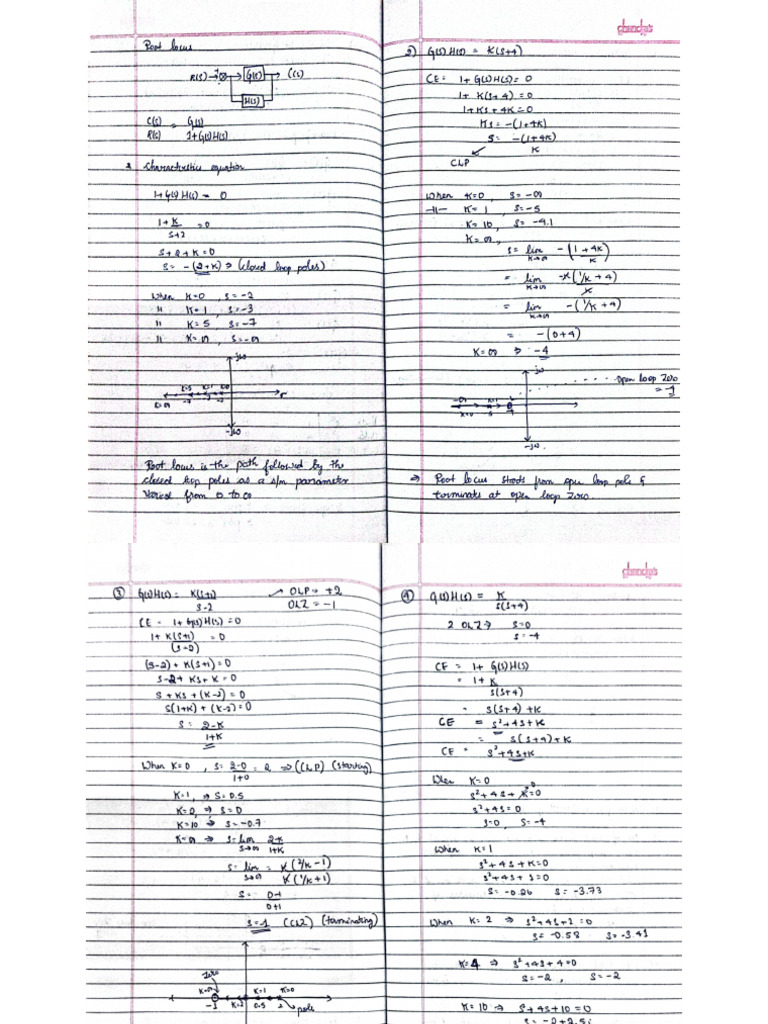 Root locus
R(s) → G(s) → C(s)
H(s)
C(s) = G(s)
R(s) 1+G(s)H(s)
Characteristics equation
1+G(s)H(s) = 0
1+K = 0
s+2
s+2+K=0
s= -(2+K) ⇒ (closed loop poles)
When K=0, s=-2
11 K=1, s=-3
11 K=5, s=-7
11 K=∞, s=-∞
jω
K=5 K=1 K=0
K=∞ -7 -3 -2 σ
-jω
Root locus is the path followed by the
closed loop poles as a s/m parameter
varied from 0 to ∞
classmate
2) G(s)H(s) = K(s+4)
CE = 1+G(s)H(s)=0
1+ K(s+4)=0
1+Ks+4K=0
Ks=-(1+4K)
s= -(1+4K)
K
CLP
When K=0, s=-∞
-11- K=1, s=-5
K=10, s=-4.1
K=∞,
s= lim -(1+4K)
K→∞ K
= lim -K(1/K+4)
K→∞ K
= lim -(1/K+4)
K→∞
= -(0+4)
K=∞ ⇒ -4
jω
open loop zero
-∞ K=1
K=0
-jω
⇒ Root locus starts from open loop pole &
terminates at open loop zero.
classmate
③ G(s)H(s)= K(s+1) → OLP= +2
s-2 OLZ = -1
CE = 1+G(s)H(s)=0
1+K(s+1) =0
(s-2)+K(s+1)=0
s-2+Ks+K=0
s+Ks+(K-2)=0
s(1+K)+(K-2)=0
s= 2-K
1+K
When K=0, s= 2-0 = 2 ⇒ (CLP) (starting)
1+0
K=1, ⇒ s=0.5
⇒ s=0
K=10 ⇒ s=-0.7
K=∞ ⇒ s=lim 2-K
s→∞ 1+K
s= lim = K(2/K-1)
s→∞ K(1/K+1)
s= 0-1
0+1
s=-1 (CLZ) (terminating)
zero
K=∞ K=1 K=0
-1 K=2 0.5 2 pole
④ G(s)H(s) = K
s(s+4)
2 OLZ → s=0
s=-4
CE = 1+ G(s)H(s)
= 1+ K
s(s+4)
= s(s+4)+K
CE = s²+4s+K
= s(s+4)+K
CE = s²+4s+K
When K=0
s²+4s+K=0
s²+4s=0
s=0, s=-4
When K=1
s²+4s+K=0
s²+4s+1=0
s=-0.26 s=-3.73
When K=2 ⇒ s²+4s+2=0
s=-0.58 s=-3.41
K=4 ⇒ s²+4s+4=0
s=-2, s=-2
K=10 ⇒ s+4s+10=0